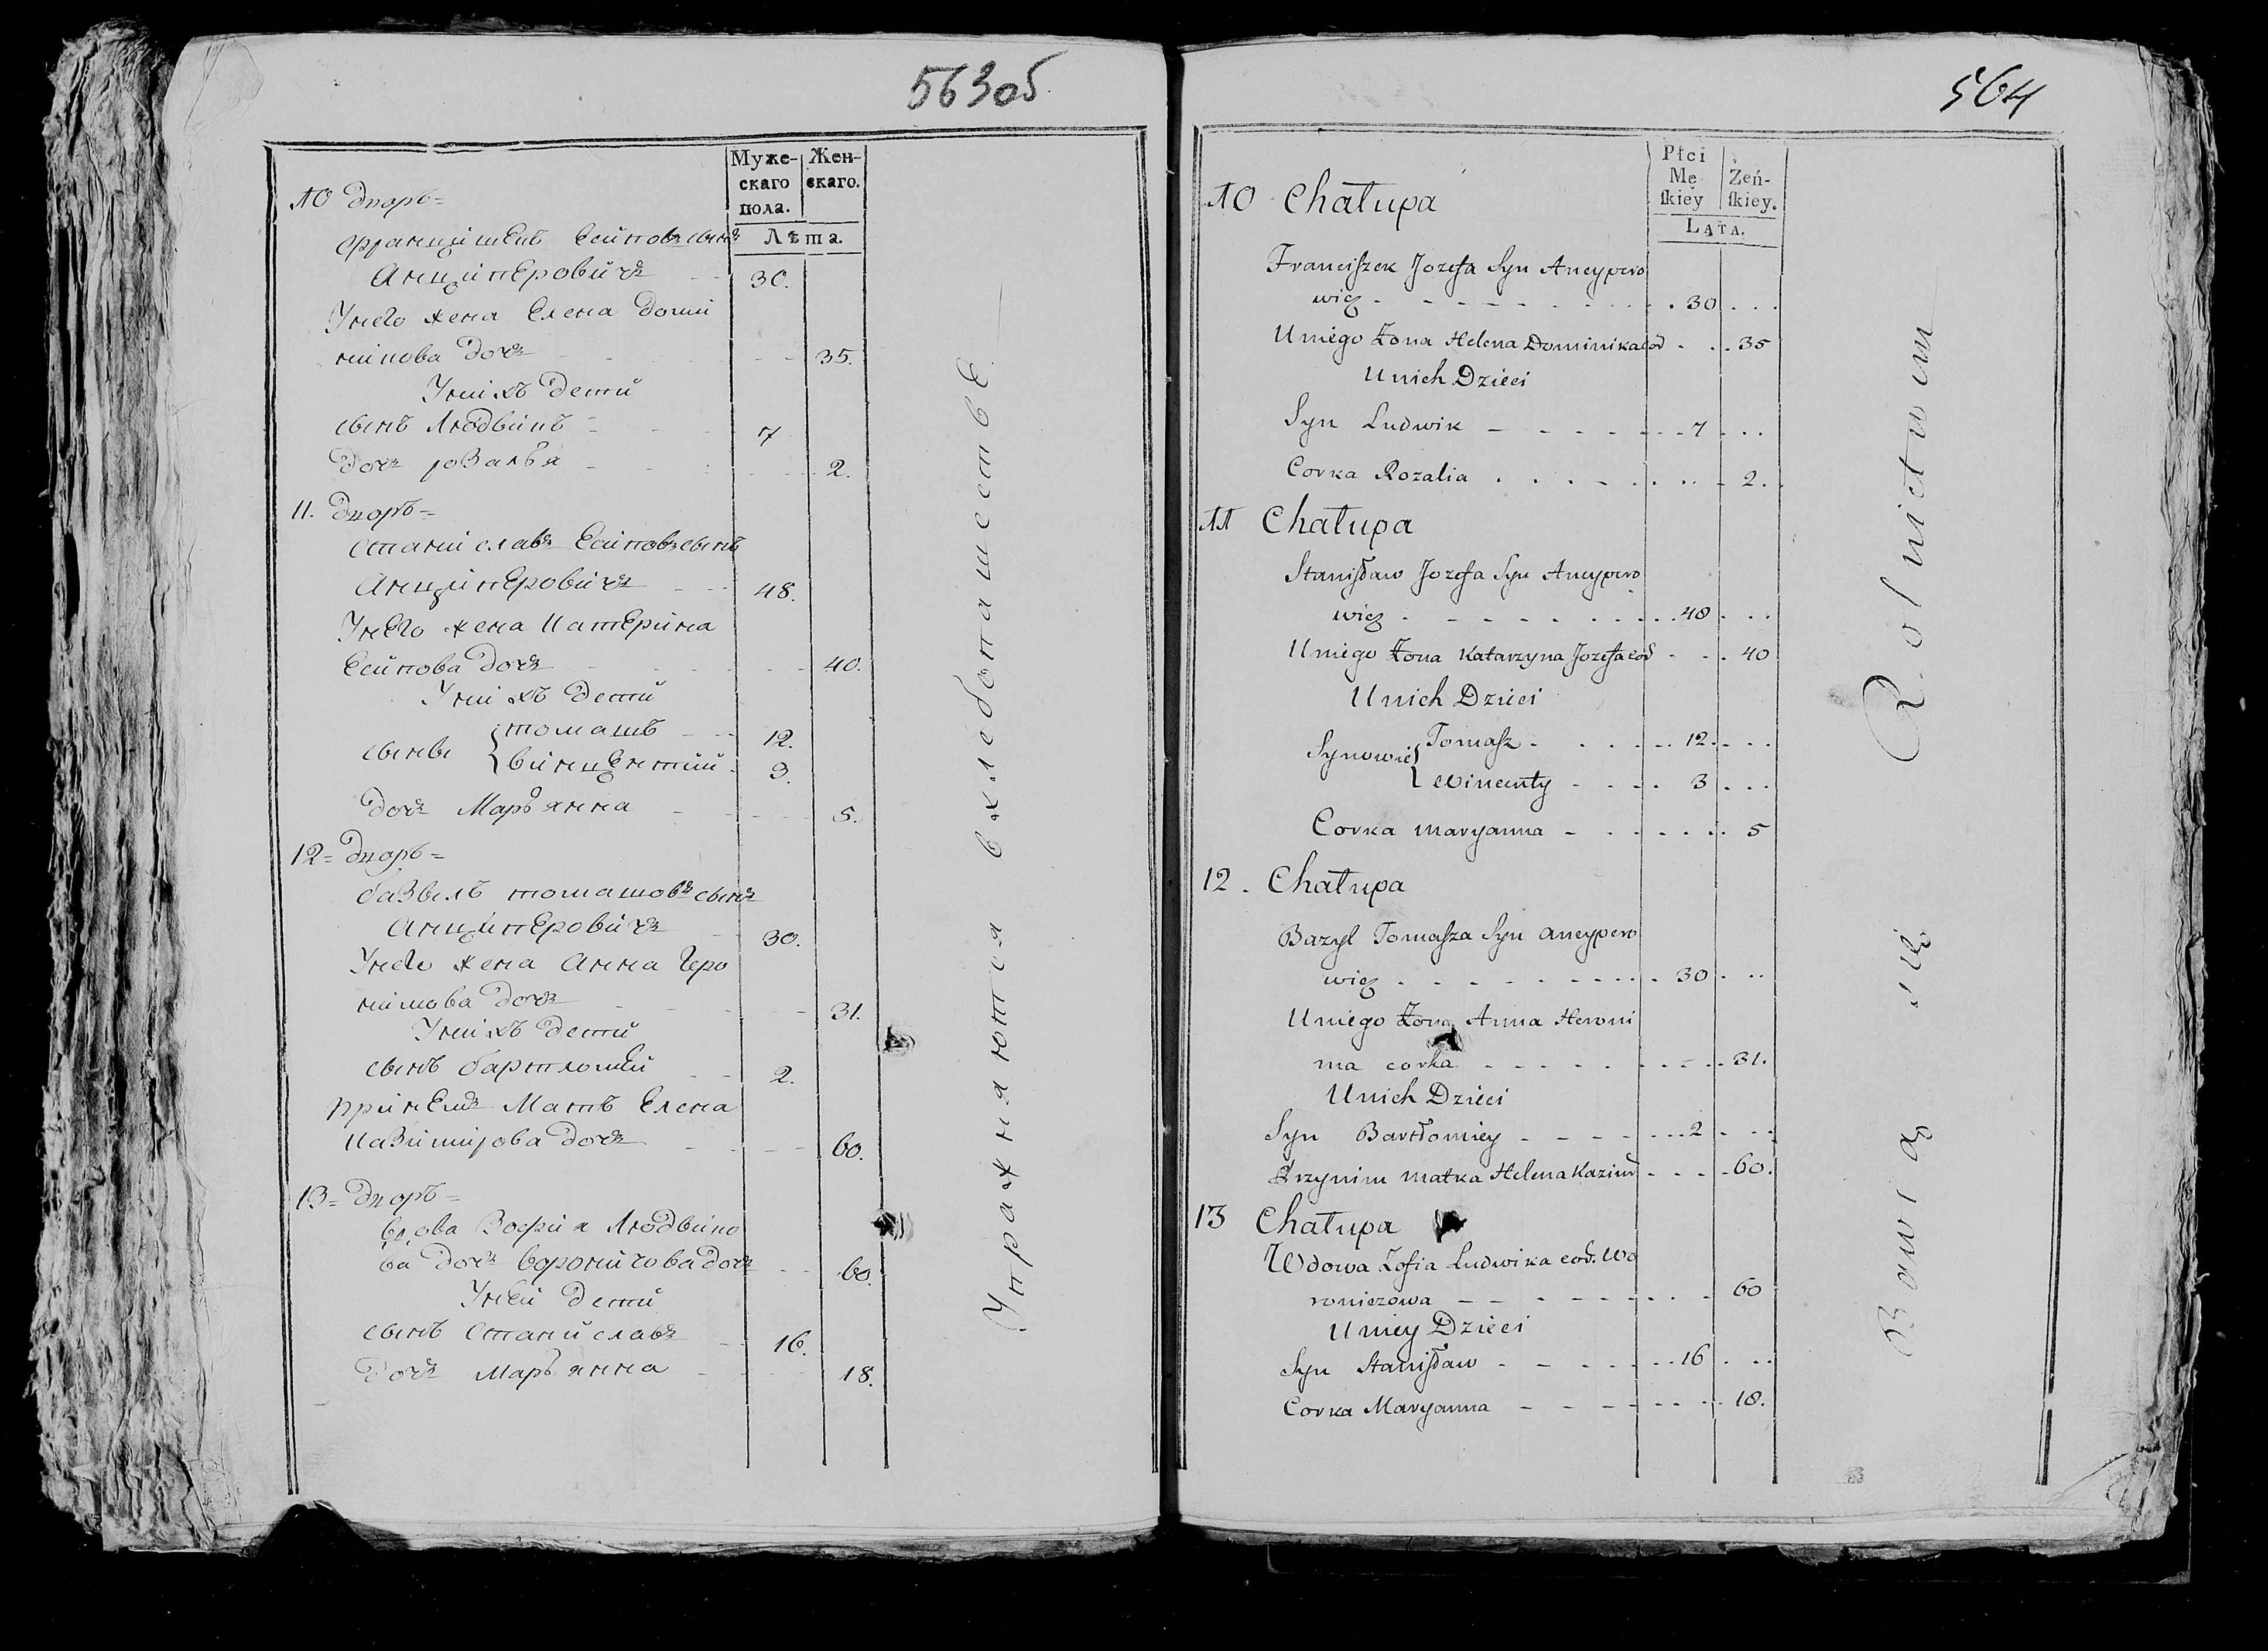 563об
Муже-
скаго
пола.
Жен-
скаго.
Лѣта.
10 Дворъ=
Францишекъ Есиповъ сынъ
Анциперовичъ - - 30.
У него жена Елена Доми
никова дочь - - 35.
У нихъ дети
сынъ Людвикъ - - 7
дочь розалья - - 2.
11. Дворъ=
Станиславъ Есиповъ сынъ
Анциперовичъ - - 48.
У него жена Катерина
Есипова дочь - - 40.
У нихъ дети
сыны { томашъ - - 12.
{ винцентий - 3.
дочь Марьянна - - 5.
12= Дворъ=
базыль томашовъ сынъ
Анциперовичъ - 30.
У него жена Анна Геро
нимова дочь - - 31.
У нихъ дети
сынъ бартломей - - 2.
при немъ Мать Елена
Казимирова дочь - - 60.
13= Дворъ=
вдова Зофия Людвико
ва дочь вороничова дочь - - 60.
У ней дети
сынъ Станиславъ - 16.
дочь Марьянна - - 18.
Упражняются в хлебопашестве
564
Płci
Mę
ſkiey
Żeń-
ſkiey.
Lата.
10 Chałupa
Franciſzek Jozefa Syn Ancypero
wicz - - - 30 . . .
U niego Żona Helena Dominika cór - . . 35
U nich Dzieci
Syn Ludwik - - - 7 . . .
Corka Rozalia . . . - 2.
11 Chałupa
Staniſław Jozefa Syn Ancypero
wicz - - - 48 . . .
U niego Żona Katarzyna Jozefa cór - . . 40
U nich Dzieci
Synowie { Tomaſz - . . 12 . . .
{ Wincenty - - . 3 . . .
Corka Maryanna - . . . 5
12. Chałupa
Bazyl Tomaſza Syn Ancypero
wicz . - - - 30 . . .
U niego Żona Anna Heroni
ma corka - - - 31.
U nich Dzieci
Syn Bartłomiey - - - 2 . . .
Przynim matka Helena Kazim - - . 60.
13 Chałupa
Wdowa Zofia Ludwika cor. Wo
roniczowa - - - . 60
U niey Dzieci
Syn Staniſław - - - 16 . . .
Corka Maryanna - - - 18.
Bawią się Rolnictwem